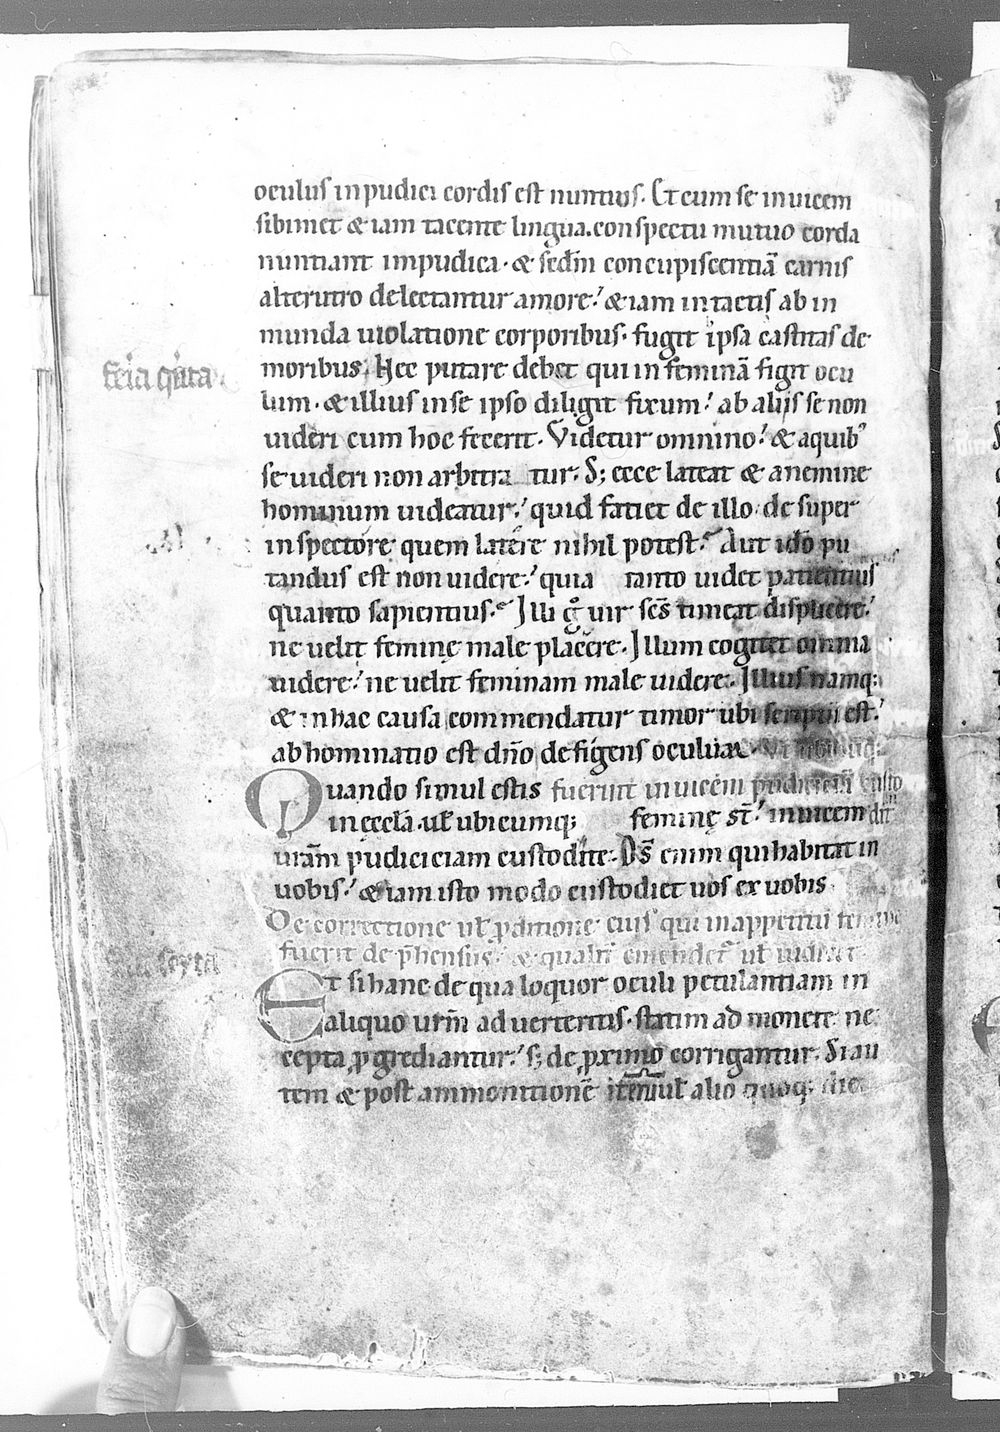 oculus inpudici cordis est nuntius. Et cum se inuicem
sibimet & iam tacente lingua. conspectu mutuo corda
nuntiant impudica. & sedm̄ concupiscentiā carnis
alterutro delectantur amore. & iam intactis ab in
munda uiolatione corporibus. fugit ipsa castitas de
moribus; Hec putare debet qui in feminā figit ocu
feria quinta
lum. & illius inse ipso diligit fixum. ab alijs se non
uideri cum hoc fecerit. Videtur omnino. & aquib'
se uideri non arbitra tur. S; ecce lateat & anemine
hominum uideatur. quid faciet de illo de super
inspectore quem latere nihil potest. Aut ido pu
tandus est non uidere. quia tanto uidet patientius
quanto sapientius. Illi g° uir scs timeat displicere.
ne uelit feminę male placere. Illum cogitet omnia
uidere. ne uelit feminam male uidere. Illius namq;
& inhac causa commendatur timor ubi scriptū est.
abhominatio est dn̄o defigens oculum.
Quando simul estis fuerint inuicem pudicitiā custo
in ęcclā. ul' ubicumq; feminę st̄. inuicem
urām pudiciciam custodite. Ds̄ enim qui habitat in
uobis. & iam isto modo custodiet uos ex uobis
De correctione ul' eius qui in appetitu
fuerit de p̄hensus. & qualit̄ emendet̄ ul'
sexta
Et si hanc de qua loquor oculi petulantiam in
aliquo urm̄ aduerteritis. statim admonete ne
cepta progrediantur. s; de proximo corrigantur. Si au
tem & post ammonitionē iterum ul' alio quoq; die